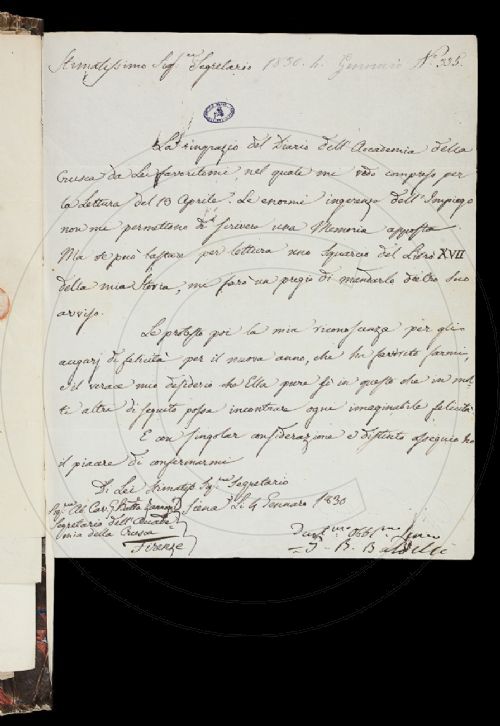 Stimatissimo Sigr. Segretario 1830. 4. Gennaio No. 335.
La ringrazio del Diario dell'Accademia della
Crusca da Lei favoritomi, nel quale mi vedo compreso per
la Lettura del 13 Aprile. Le enormi ingerenze dell'Impiego
non mi permettono di scrivere una Memoria apposta.
Ma se può bastare per lettura uno Squarcio del Libro XVII
della mia Storia, mi farò un pregio di mandarlo dietro suo
avviso.
Le protesto poi la mia riconoscenza per gli
augurj di felicità per il nuovo anno, che ha favorito farmi,
ed il verace mio desiderio che Ella pure sì in questo che in mol
ti altri di seguito possa incontrare ogni imaginabile felicità.
E con singolar considerazione e distinto ossequio ho
il piacere di confermarmi
Di Lei Stimatiss. Sigr. Segretario
Sigr. Ab. Cav.
Siena Li 4 Gennaro 1830
Segretario dell'Accade
mia della Crusca
Firenze
Dev. Obbl. Servo
G. B. Baldelli